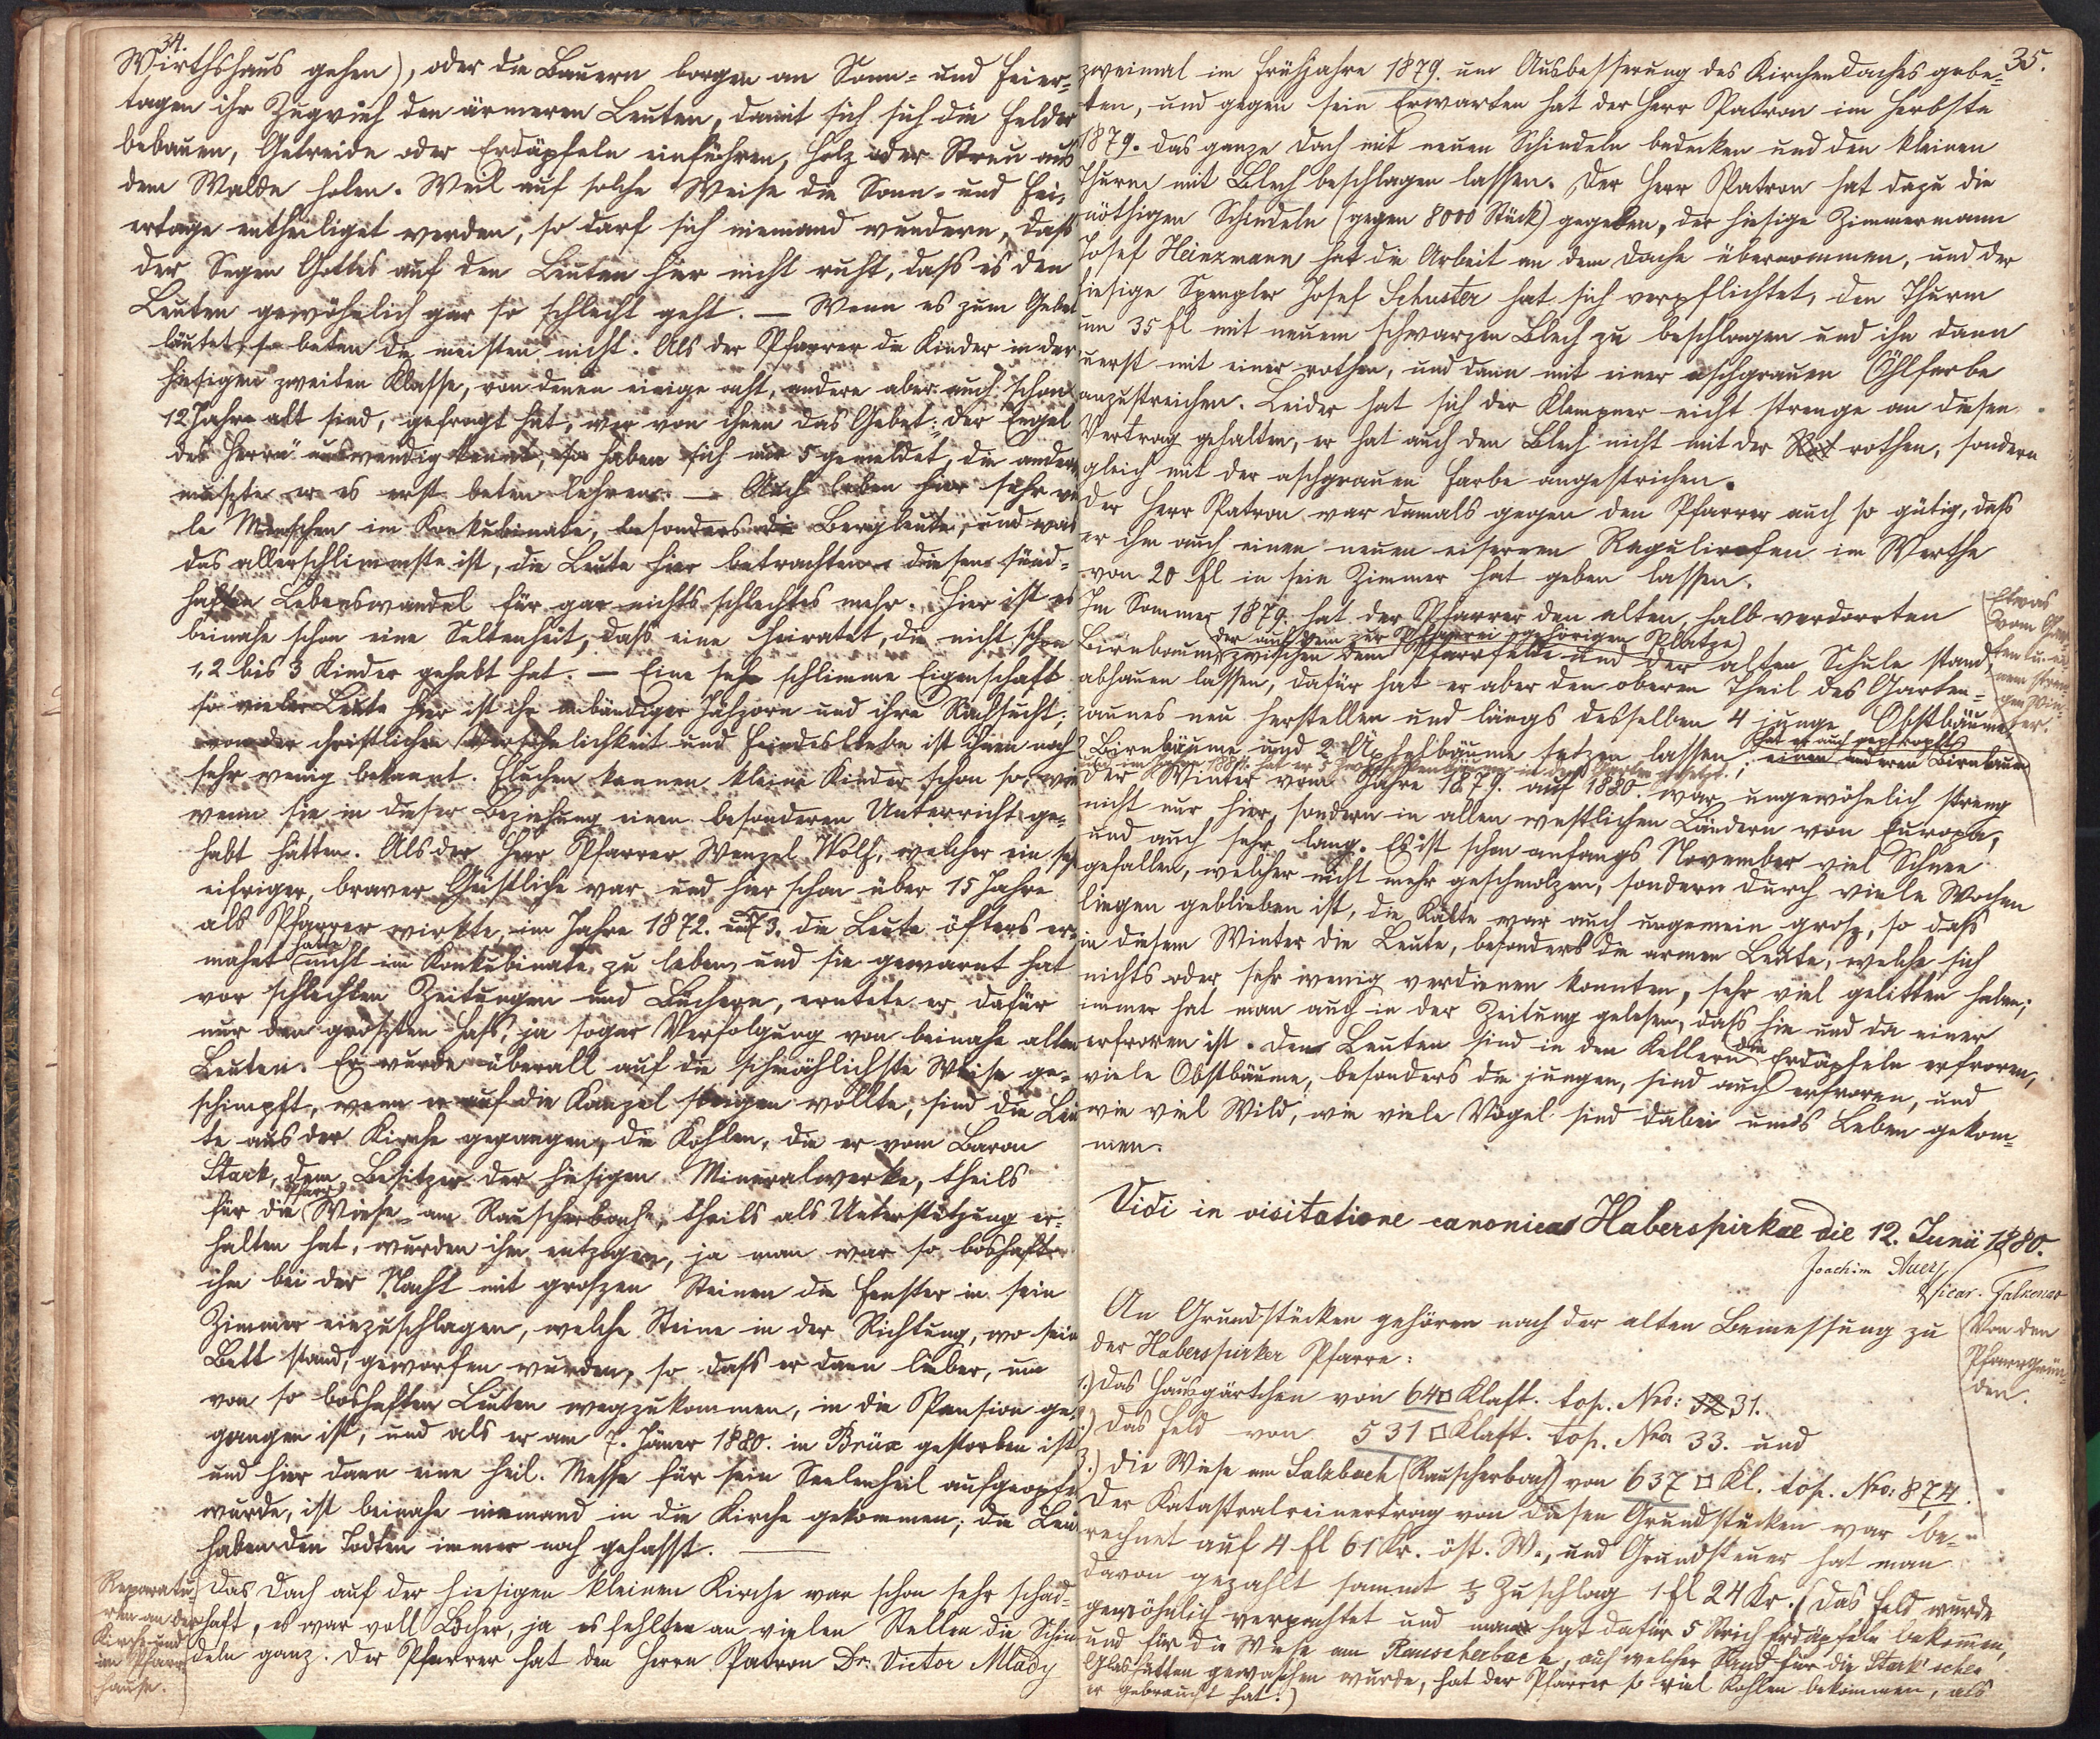 34.
Wirthshaus gehen), oder die Bauern borgen an Sonn- und Feier-
tagen ihr Zugvieh den ärmeren Leuten, damit sich sich die Felder
bebauen, Getreide oder Erdäpfeln einführen, Holz oder Streu aus
dem Walde holen. Weil auf solche Weise die Sonn- und Fei-
ertage entheiliget werden, so darf sich niemand wundern, daß
der Segen Gottes auf den Leuten hier nicht ruht, daß es den
Leuten gewöhnlich gar so schlecht geht. — Wenn es zum Gebet
läutet, so beten die meisten nicht. Als der Pfarrer die Kinder in der
hiesigen zweiten Klasse, von denen einige acht, andere aber auch schon
12 Jahre alt sind, gefragt hat, wer von ihnen das Gebet: „der Engel
des Herrn“ auswendig kennt, so haben sich nur 5 gemeldet, die andern
mußte er es erst beten lehren. — Auch leben hier sehr vie
le Menschen im Konkubinate, besonders die Bergleute, und was
das allerschlimmste ist, die Leute hier betrachten diesen sünd-
haften Lebenswandel für gar nichts schlechtes mehr. Hier ist es
beinahe schon eine Seltenheit, daß eine heiratet, die nicht schon
1, 2 bis 3 Kinder gehabt hat. — Eine sehr schlimme Eigenschaft
so vieler Leute hier ist ihr unbändiger Jähzorn und ihre Rachsucht;
von der christlichen Versöhnlichkeit und Feindesliebe ist ihnen noch
sehr wenig bekannt. Fluchen können kleine Kinder schon so, wie
wenn sie in dieser Beziehung einen besonderen Unterricht ge-
habt hätten. Als der Herr Pfarrer Wenzel Wolf, welcher ein sehr
eifriger, braver Geistliche war und hier schon über 15 Jahre
als Pfarrer wirkte, im Jahre 1872. und 73. die Leute öfters er-
mahnt hatte nicht im Konkubinate zu leben, und sie gewarnt hat
vor schlechten Zeitungen und Büchern, erntete er dafür
nur den größten Haß, ja sogar Verfolgung von beinahe allen
Leuten. Er wurde überall auf die schmählichste Weise ge-
schimpft, wenn er auf die Kanzel steigen wollte, sind die Leu
te aus der Kirche gegangen, die Kohlen, die er vom Baron
Stark, dem Besitzer der hiesigen Mineralwerke, theils
für die Pfarr Wiese am Rauscherbache, theils als Unterstützung er-
halten hat, wurden ihm entzogen, ja man war so boshaft
ihm bei der Nacht mit großen Steinen die Fenster in sein
Zimmer einzuschlagen, welche Steine in der Richtung, wo sein
Bett stand, geworfen wurden, so daß er dann lieber, um
von so boshaften Leuten wegzukommen, in die Pension ge-
gangen ist, und als er am 7. Jäner 1880. in Brüx gestorben ist
und hier dann eine heil. Messe für sein Seelenheil aufgeopfert
wurde, ist beinahe niemand in die Kirche gekommen; die Leute
haben den Todten immer noch gehasst. —
Reparatu-
ren an der
Kirche und
im Pfarr-
hause.
Das Dach auf der hiesigen kleinen Kirche war schon sehr schad-
haft, es war voll Löcher, ja es fehlten an vielen Stellen die Schin
deln ganz. Der Pfarrer hat den Herrn Patron Dr. Victor Mlady
35.
zweimal im Frühjahre 1879. um Ausbesserung des Kirchendaches gebe-
ten, und gegen sein Erwarten hat der Herr Patron im Herbste
1879. das ganze Dach mit neuen Schindeln bedecken und den kleinen
Thurm mit Blech beschlagen lassen. Der Herr Patron hat dazu die
nöthigen Schindeln (gegen 8000 Stück) gegeben, der hiesige Zimmermann
Josef Heinzmann hat die Arbeit an dem Dache übernommen, und der
hiesige Spengler Josef Schuster hat sich verpflichtet, den Thurm
um 35 fl mit neuem schwarzen Blech zu beschlagen und ihn dann
zuerst mit einer rothen, und dann mit einer aschgrauen Öhlfarbe
anzustreichen. Leider hat sich der Klempner nicht strenge an diesen
Vertrag gehalten, er hat auch den Blech nicht mit der rothen, sondern
gleich mit der aschgrauen Farbe angestrichen.
Der Herr Patron war damals gegen den Pfarrer auch so gütig, daß
er ihm auch einen neuen eisernen Regulirofen im Werthe
von 20 fl in sein Zimmer hat geben lassen.
Im Sommer 1879. hat der Pfarrer den alten, halb verdorrten
der auf dem zur Pfarrei gehörigen Platze
Birnbaum zwischen dem Pfarrfelde und der alten Schule stand,
abhauen lassen, dafür hat er aber den oberen Theil des Garten-
zaunes neu herstellen und längs desselben 4 junge Obstbäume,
2 Birnbäume und 2 Äpfelbäume setzen lassen; einen anderen Birnbaum
hat er auch gepfropft
Etwas
vom Gar-
ten u. ei-
nem stren-
gen Win-
ter.
Der Winter vom Jahre 1879. auf 1880 war ungewöhnlich streng
nicht nur hier, sondern in allen westlichen Ländern von Europa,
und auch sehr lang. Es ist schon anfangs November viel Schnee
gefallen, welcher nicht mehr geschmolzen, sondern durch viele Wochen
liegen geblieben ist, die Kälte war auch ungemein groß, so daß
in diesem Winter die Leute, besonders die armen Leute, welche sich
nichts oder sehr wenig verdienen konnten, sehr viel gelitten haben;
immer hat man auch in der Zeitung gelesen, daß hie und da einer
erfroren ist. Den Leuten sind in den Kellern die Erdäpfeln erfroren,
viele Obstbäume, besonders die jungen, sind auch erfroren, und
wie viel Wild, wie viele Vögel sind dabei um's Leben gekom-
men.
Vidi in visitatione canonica Haberspirkae die 12. Junii 1880.
Joachim Auer
Vicar. Falkenau
Von den
Pfarrgrün-
den.
An Grundstücken gehören nach der alten Bemessung zu
der Haberspirker Pfarre:
1.) Das Hausgärtchen von 64□ Klaft. top. Nro: 31.
2.) Das Feld von 531 □ Klaft. top. Nro 33. und
3.) Die Wiese am Salzbach (Rauscherbach) von 637 □ Kl. top. Nro: 874.
Der Katastralreinertrag von diesen Grundstücken war be-
rechnet auf 4 fl 61 Kr. öst. W., und Grundsteuer hat man
davon gezahlt sammt 1/3 Zuschlag 1 fl 24 Kr. (Das Feld wurde
gewöhnlich verpachtet und man hat dafür 5 Strich Erdäpfeln bekommen,
und für die Wiese am Rauscherbach, auf welcher Sand für die Stark'schen
Glashütten gewaschen wurde, hat der Pfarrer so viel Kohlen bekommen, als
er gebraucht hat.)